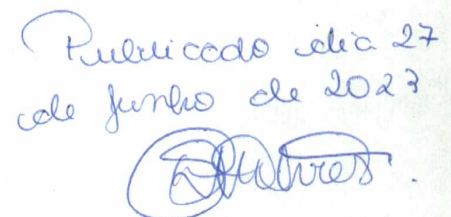 Publicado dia 27
de Junho de 2023